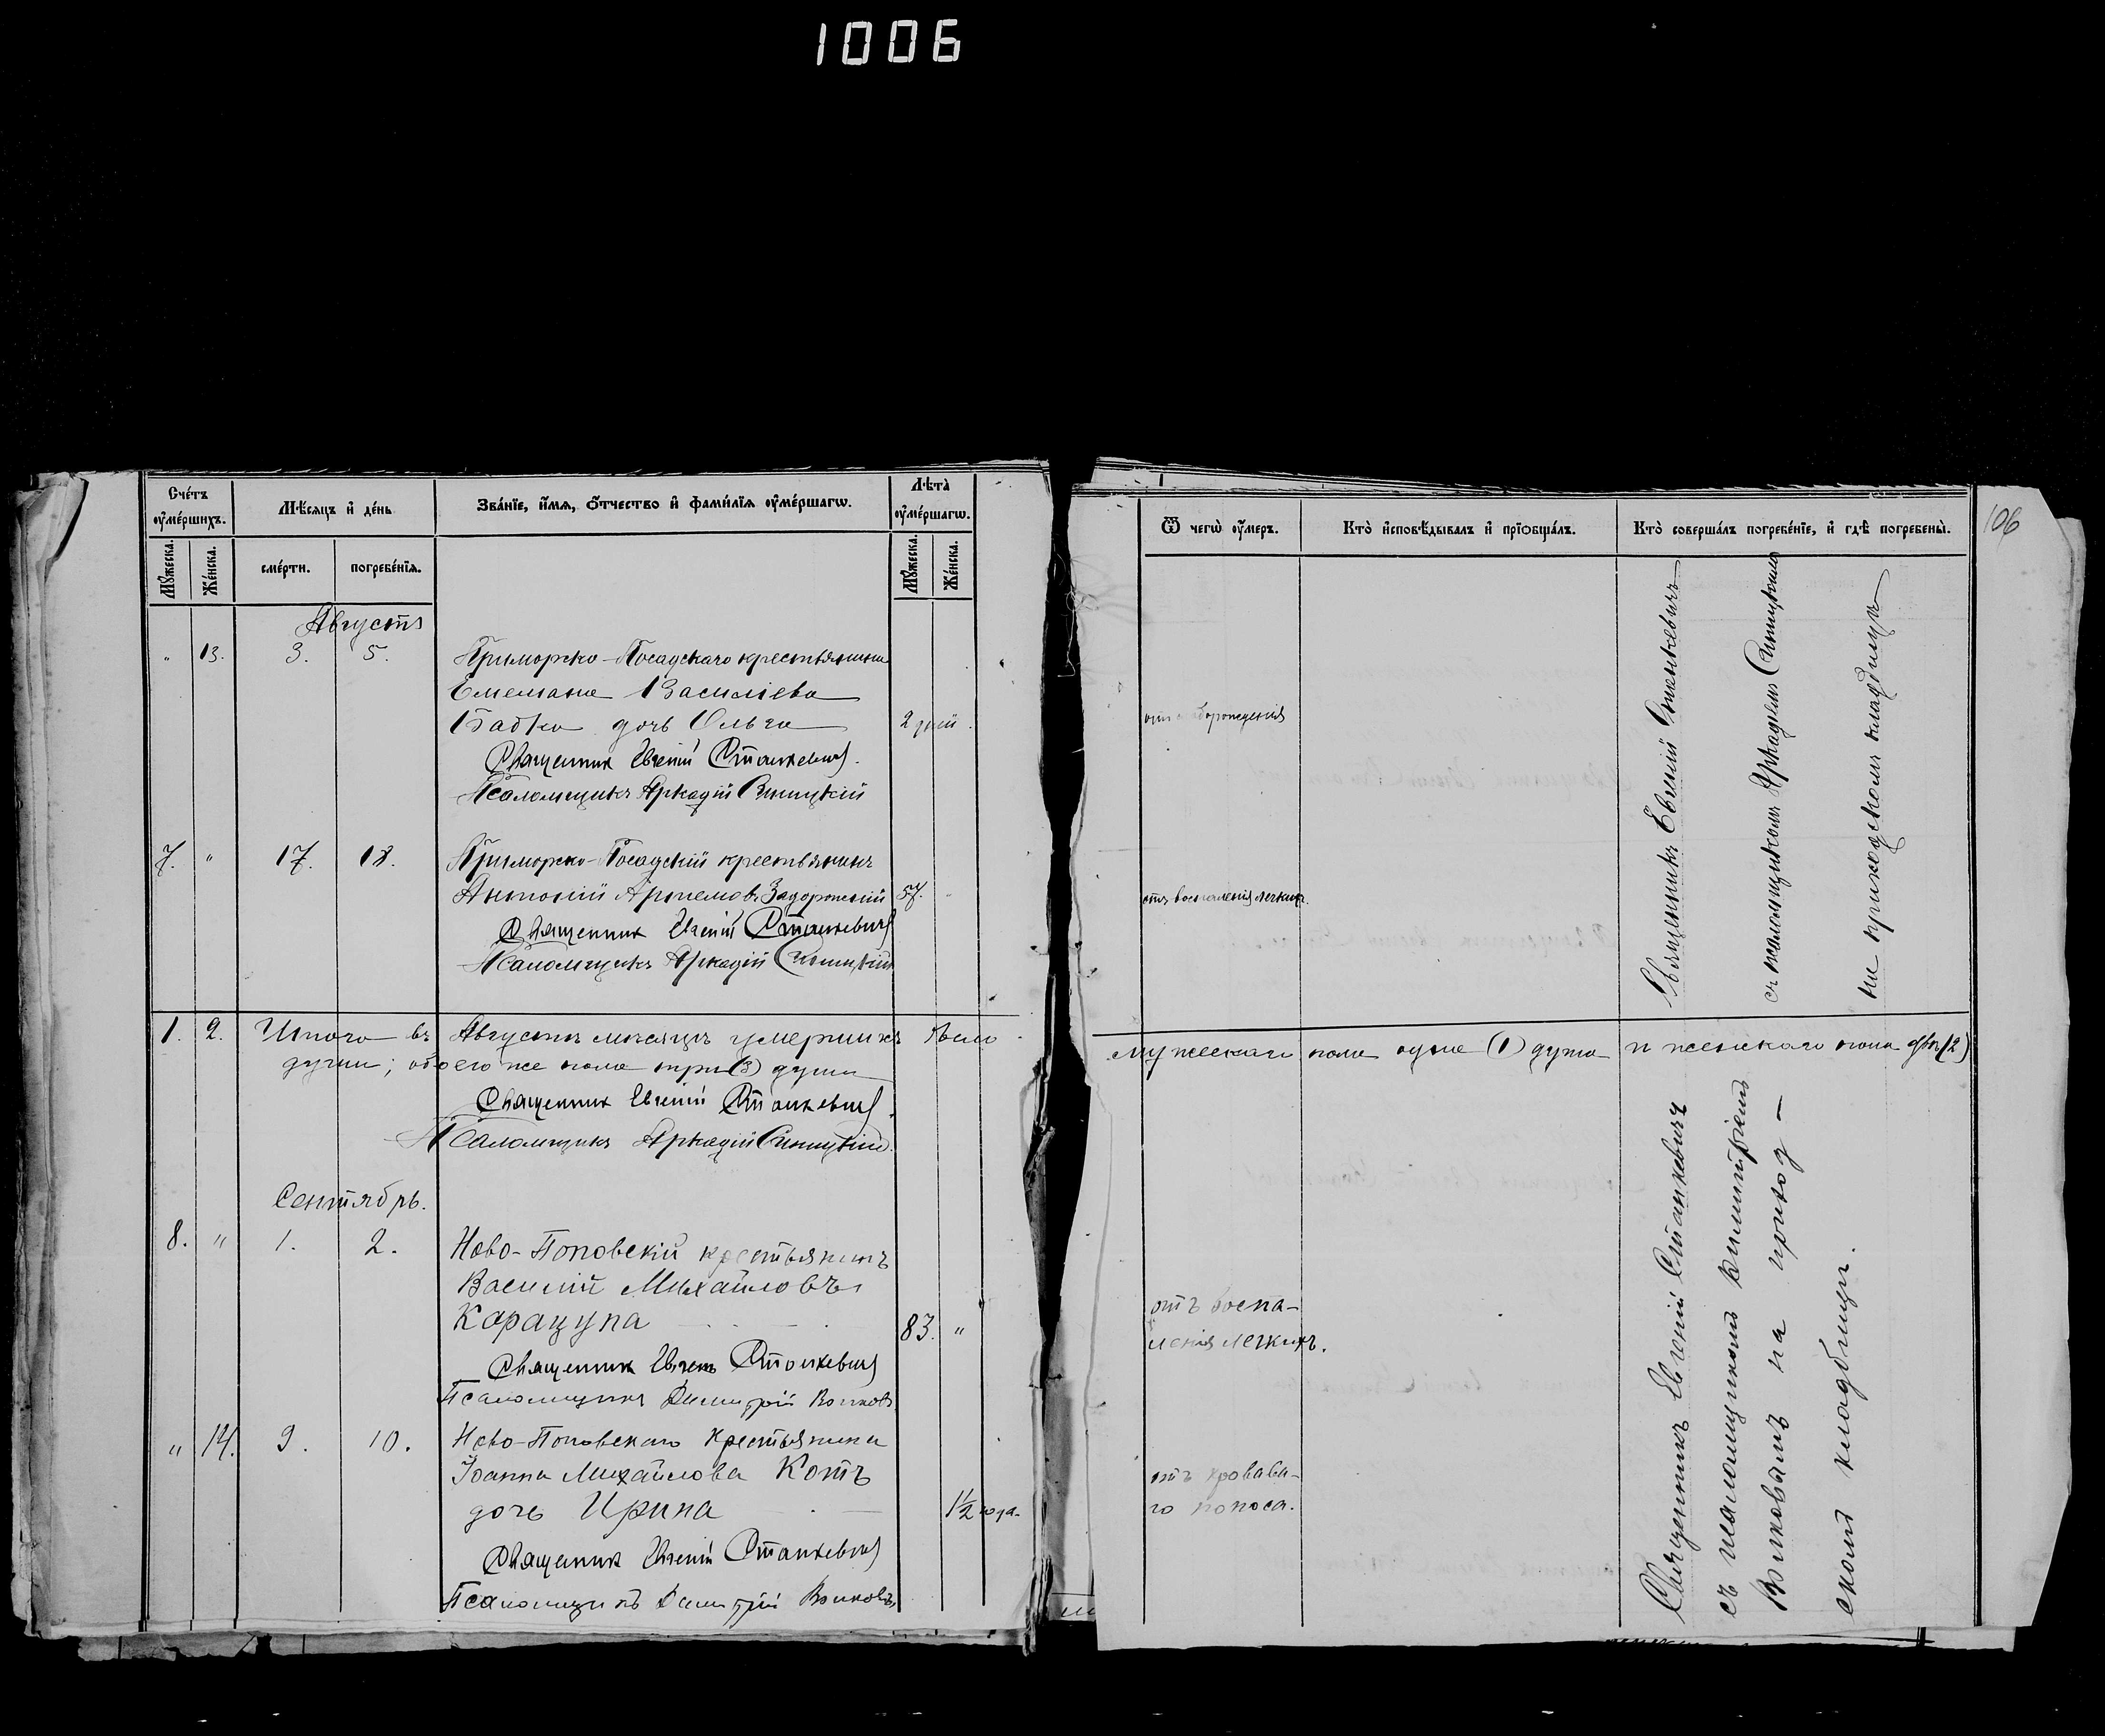 1006
Счéтъ ᲂу҆мéршихъ.
Мѣ́сяцъ и҆ дéнь
Звáнїе, и҆́мя, ѻ҆́тчество и҆ фамúлїя ᲂу҆мéршагѡ.
Лѣтà ᲂу҆мéршагѡ.
Мꙋ́жеска.
Жéнска.
смéрти.
погребéнїя.
Мꙋ́жеска.
Жéнска.
Августъ
" 13. 3. 5. Приморско-Посадскаго крестьянина
Емелiана Василiева
Бабко дочь Ольга 2 дней.
Священник Евгенiй Станкевич.
Псаломщикъ Аркадiй Синицкiй
7. " 17. 18. Приморско-Посадскiй крестьянинъ
Антонiй Артемовъ Задорожнiй 57. "
Священник Евгенiй Станкевич
Псаломщикъ Аркадiй Синицкiй
1. 2. Итого въ Августѣ мѣсяцѣ умершихъ было
души; обоего же пола три (3) души
Священник Евгенiй Станкевич.
Псаломщикъ Аркадiй Синицкiй.
Сентябрь.
8. " 1. 2. Ново-Поповскiй крестьянинъ
Василiй Михайловъ
Карацупа 83. "
Священник Евгенiй Станкевич
Псаломщикъ Димитрiй Волковъ
" 14. 9. 10. Ново-Поповскаго крестьянина
Iоанна Михайлова Котъ
дочь Ирина 1½ года.
Священник Евгенiй Станкевич
Псаломщикъ Димитрiй Волковъ
Ѿ чегѡ̀ ᲂу҆́меръ.
Ктò и҆сповѣ́дывалъ и҆ прїѻбщáлъ.
Ктò совершáлъ погребéнїе, и҆ гдѣ̀ погребены̀.
106
отъ воспаленiя легкихъ.
Священникъ Евгенiй Станкевичъ
съ псаломщикомъ Аркадiемъ Синицкимъ
на приходскомъ кладбищѣ
мужескаго пола одна (1) душа и женскаго пола двѣ (2)
отъ воспа-
ленiя легкихъ.
отъ кровава-
го поноса.
Священникъ Евгенiй Станкевичъ
съ псаломщикомъ Димитрiемъ
Волковымъ на приход-
скомъ кладбищѣ.